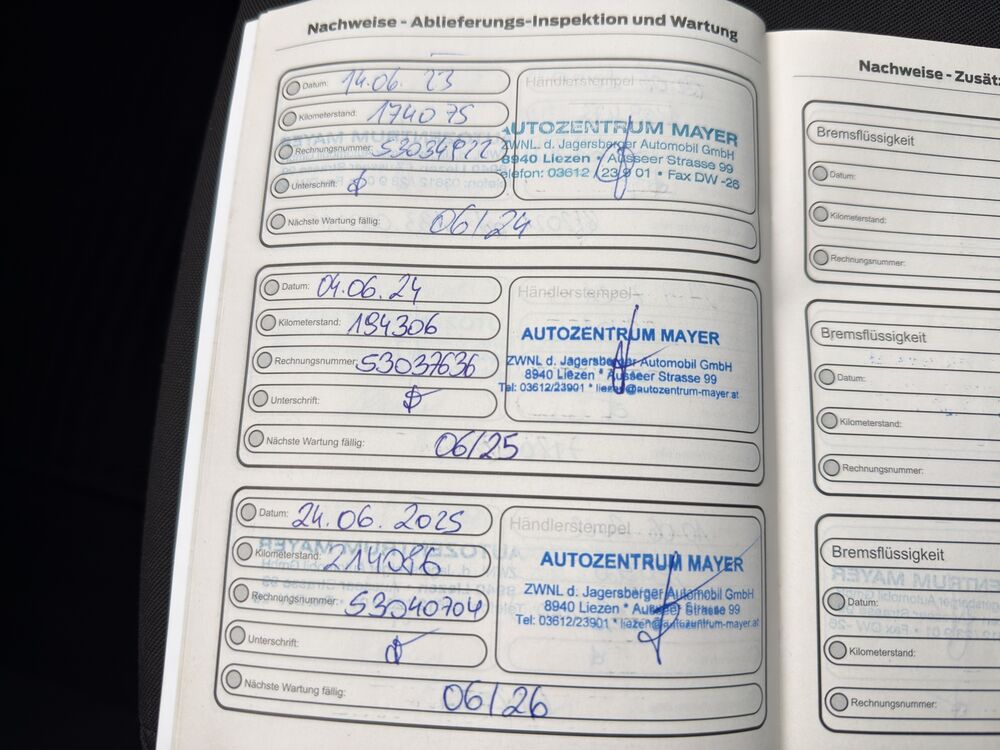 Nachweise - Ablieferungs-Inspektion und Wartung
Datum: 14.06. 23
Kilometerstand: 174075
Rechnungsnummer: 53034922
Unterschrift:
Nächste Wartung fällig: 06/24
Händlerstempel
AUTOZENTRUM MAYER
ZWNL. d. Jagersberger Automobil GmbH
8940 Liezen • Ausseer Strasse 99
Telefon: 03612 / 23 9 01 • Fax DW -26
Datum: 04.06.24
Kilometerstand: 194306
Rechnungsnummer: 53037636
Unterschrift:
Nächste Wartung fällig: 06/25
Händlerstempel
AUTOZENTRUM MAYER
ZWNL d. Jagersberger Automobil GmbH
8940 Liezen * Ausseer Strasse 99
Tel: 03612/23901 * liezen@autozentrum-mayer.at
Datum: 24.06. 2025
Kilometerstand: 214096
Rechnungsnummer: 53040704
Unterschrift:
Nächste Wartung fällig: 06/26
Händlerstempel
AUTOZENTRUM MAYER
ZWNL d. Jagersberger Automobil GmbH
8940 Liezen * Ausseer Strasse 99
Tel: 03612/23901 * liezen@autozentrum-mayer.at
Nachweise - Zusätz
Bremsflüssigkeit
Datum:
Kilometerstand:
Rechnungsnummer:
Bremsflüssigkeit
Datum:
Kilometerstand:
Rechnungsnummer:
Bremsflüssigkeit
Datum:
Kilometerstand:
Rechnungsnummer: